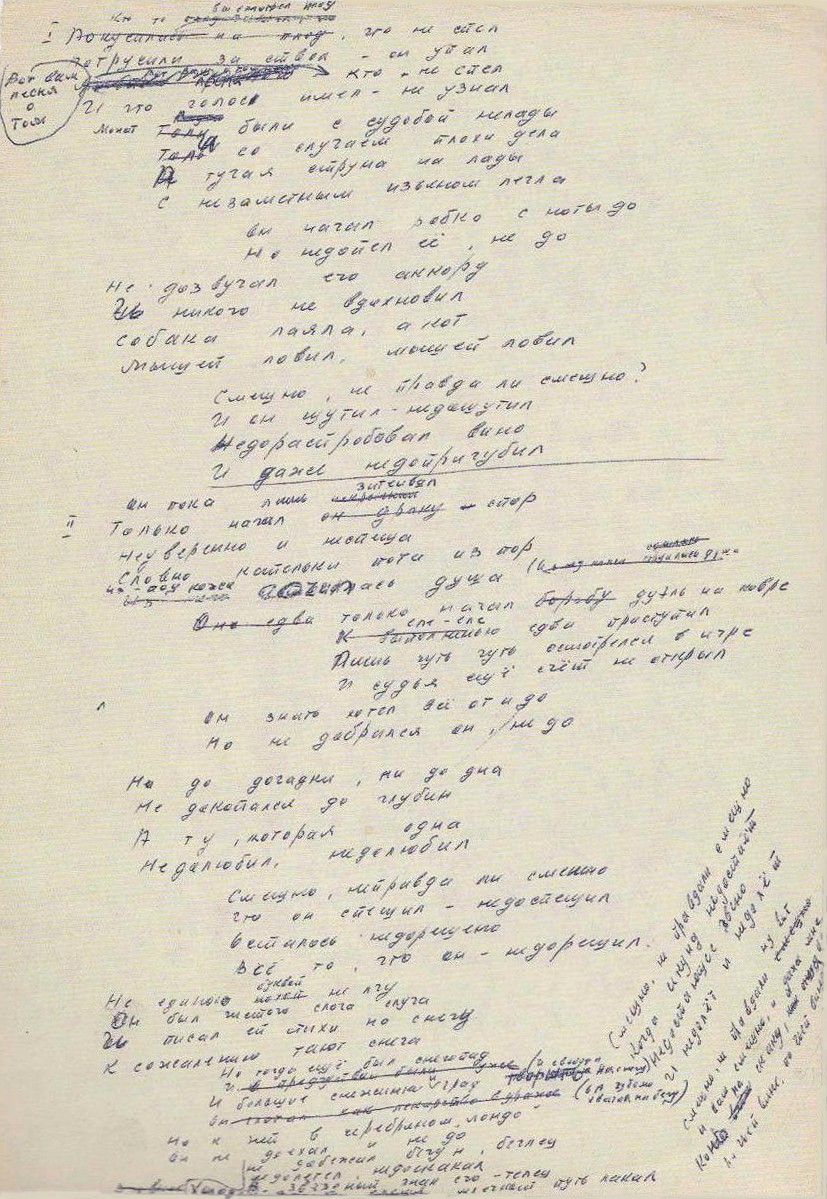 Кто то высмотрел плод
I Покусились на плод, что не спел
Потрусили за ствол - он упал
Вот вам песня о том
Кто не спел
И что голос имел - не узнал
Может были с судьбой нелады
со случаем плохи дела
А тугая струна на лады
С незаметным изъяном легла
Он начал робко с ноты до
Но не допел её, не до
Не дозвучал его аккорд
И никого не вдохновил
Собака лаяла, а кот
Мышей ловил, мышей ловил
Смешно, не правда ли смешно?
И он шутил - недошутил
Недораспробовал вино
И даже недопригубил
Он пока лишь затеивал
II Только начал он драку спор
Неуверенно и неспеша
Словно капельки пота из пор
Из-под кожи сочилась душа
Он едва только начал борьбу дуэль на ковре
еле-еле
К выполнению едва приступил
Лишь чуть чуть осмотрелся в игре
И судья ещё счёт не открыл
Он знать хотел всё от и до
Но не добрался он, не до
Ни до догадки, ни до дна
Не докопался до глубин
А ту, которая одна
Недолюбил, недолюбил
Смешно, неправда ли смешно
Что он спешил - недоспешил
Осталось недорешено
Всё то, что он - недорешил.
Не единою буквой не лгу
Он был чистого слога слуга
И писал ей стихи на снегу
К сожалению тают снега
Но тогда ещё был снегопад
И свобода писать на снегу
И большие снежинки и град
Он губами хватал на бегу
Но к ней в серебряном ландо
Он не доехал и не до
Не добежал бегун, беглец
Недолетел, недоскакал
А звёздный знак его - телец
млечный путь лакал
Смешно, не правда ли смешно
Когда секунд недостаёт
Недостающее звено
И недолёт и недолёт
Смешно, не правда ли ну вот
и вам смешно, и даже мне
Конь на скаку,
По чьей вине, по чьей вине